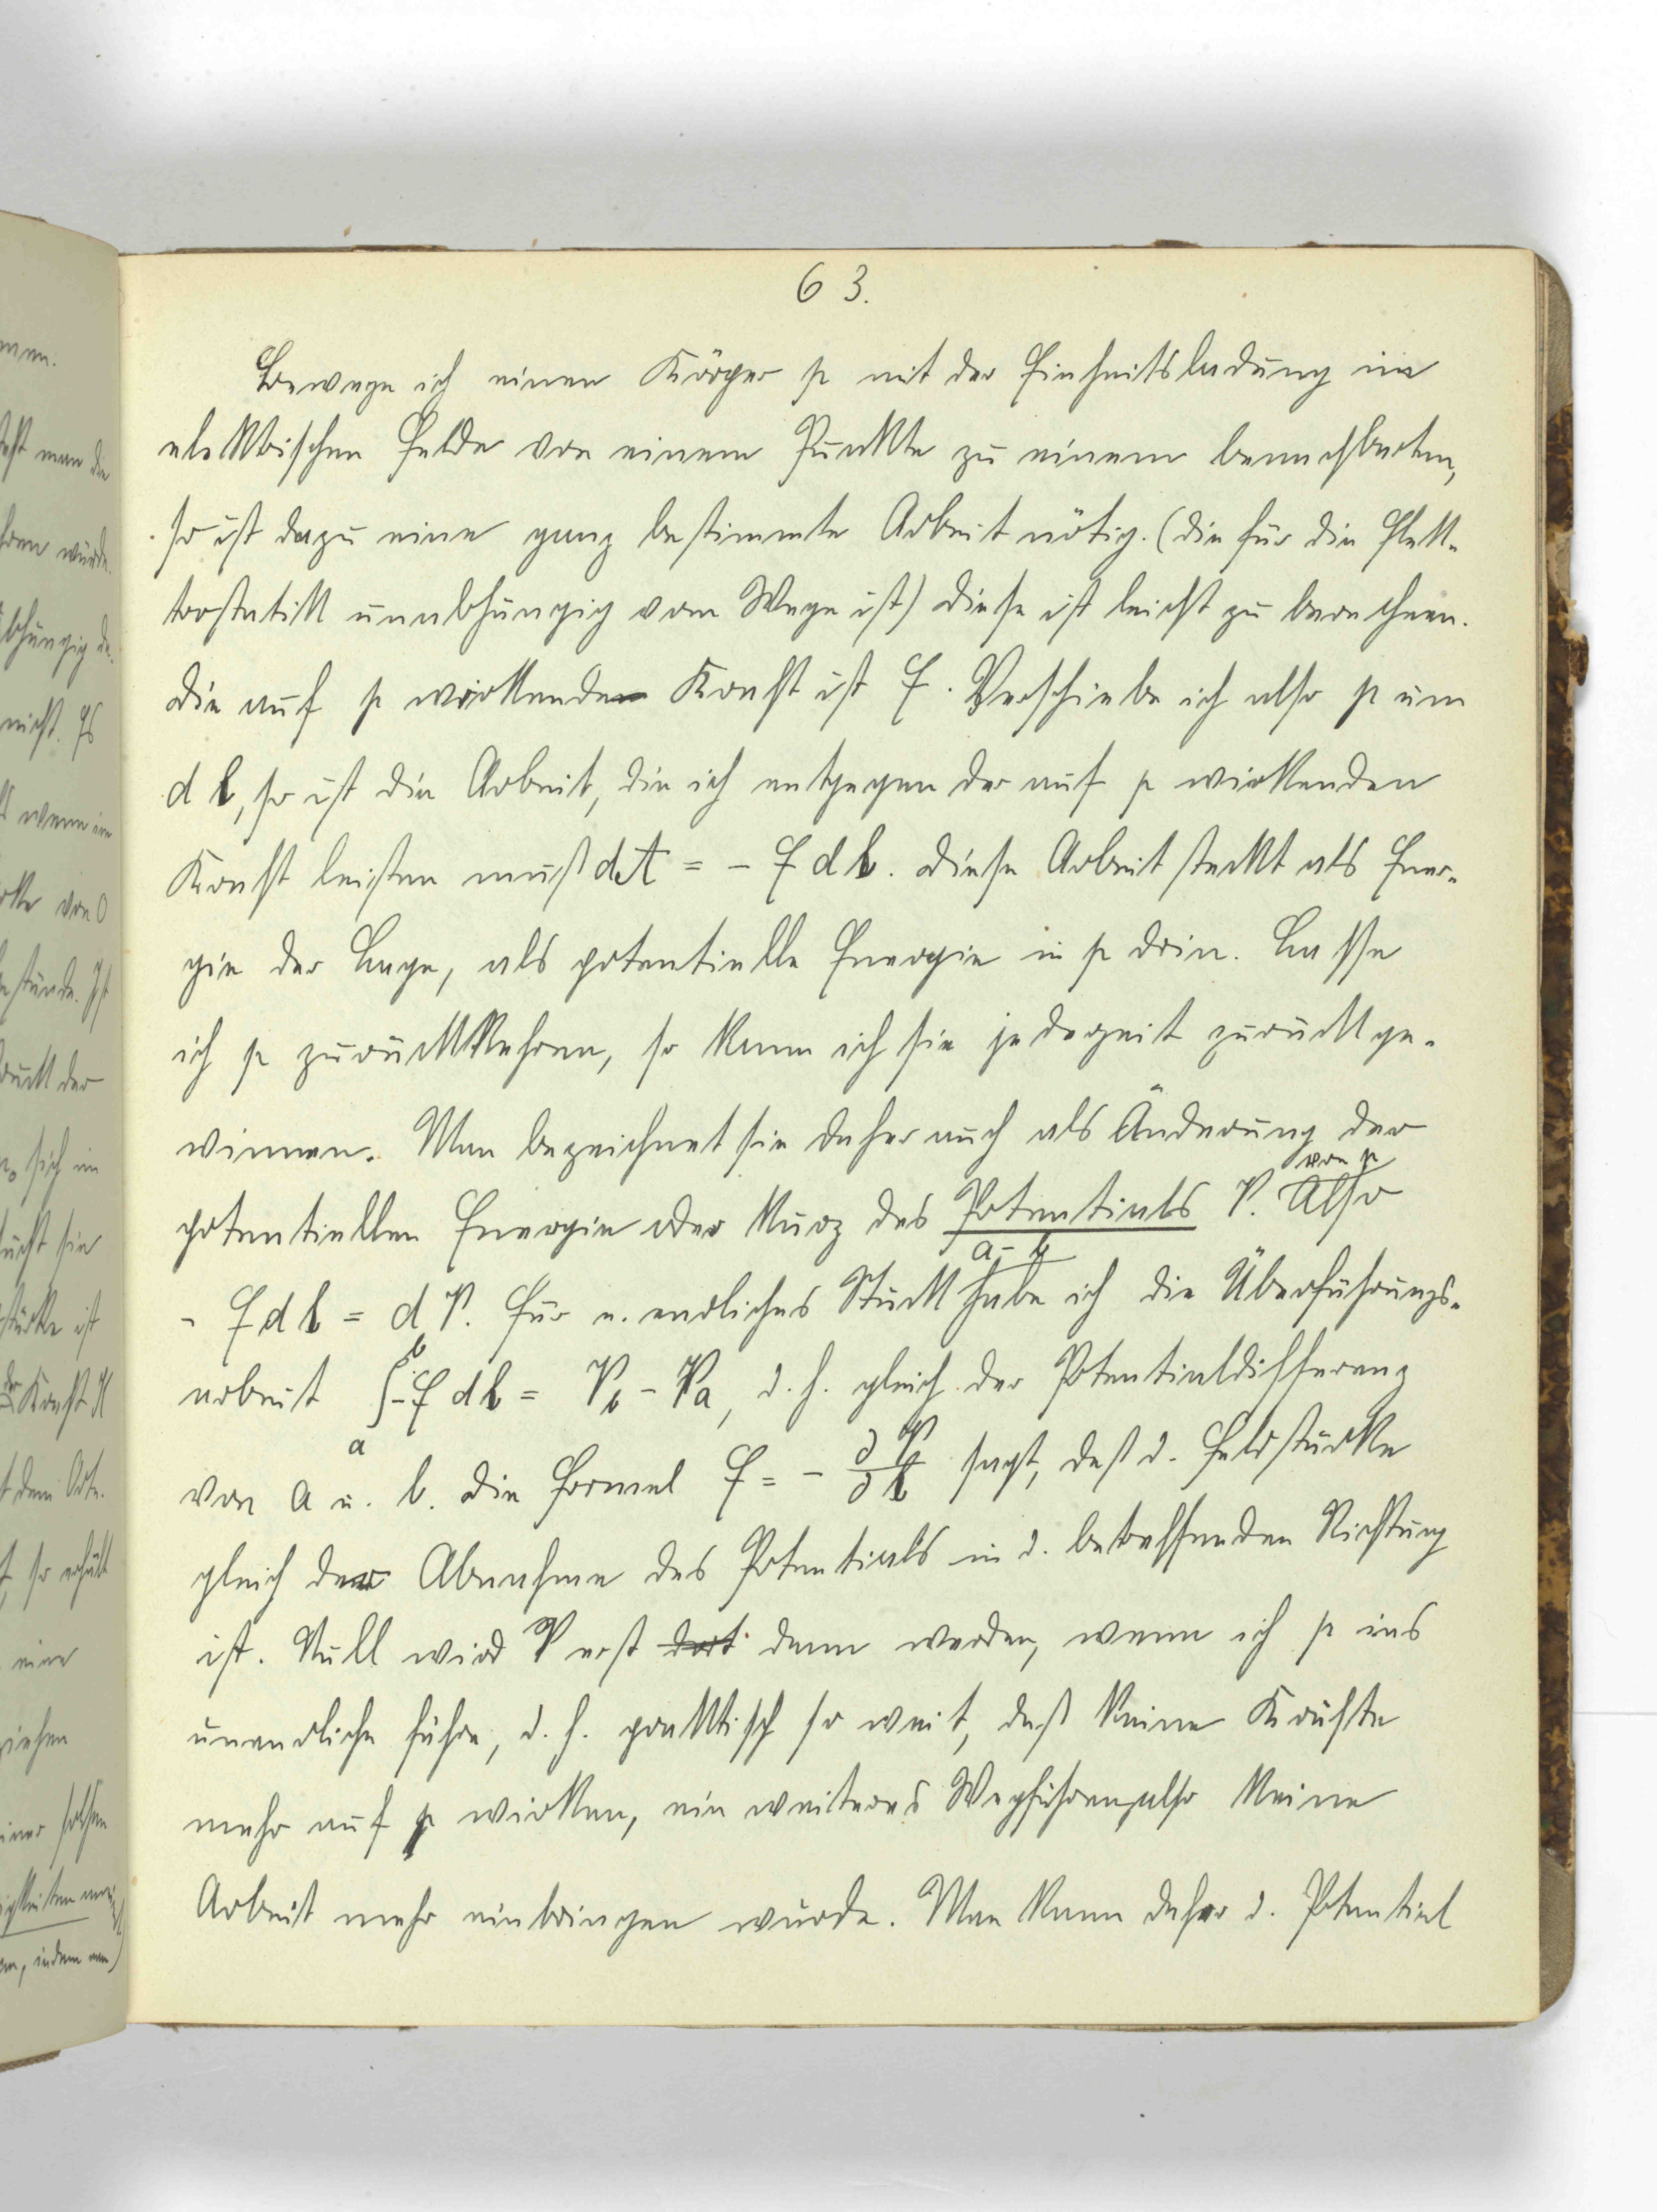 63.
Bewege ich einen Körper p mit der Einheitsladung im
elektrischen Felde von einem Punkte zu einem benachbarten,
so ist dazu eine ganz bestimmte Arbeit nötig. (die für die Elek-
trostatik unabhängig vom Wege ist) diese ist leicht zu berechnen.
die auf p wirkende Kraft ist E. Verschiebe ich also p um
d l, so ist die Arbeit, die ich entgegen der auf p wirkenden
Kraft leisten muß dA = - E d l. diese Arbeit steckt als Ener-
gie der Lage, als potentielle Energie in p drin. Lasse
ich p zurückkehren, so kann ich sie jederzeit zurückge-
winnen. Man bezeichnet sie daher auch als Änderung der
von p
potentiellen Energie oder kurz des Potentials V. Also
a - b
- E d l = d V. Für e. endliches Stück habe ich die Überführungs-
arbeit ∫ₐᵇ - E d l = V_b - V_a, d. h. gleich der Potentialdifferenz
von a u. b. die Formel E = - ∂V/∂l sagt, daß d. Feldstärke
gleich der Abnahme des Potentials in d. betreffenden Richtung
ist. Null wird V erst dort dann werden, wenn ich p ins
unendliche führe, d. h. praktisch so weit, daß keine Kräfte
mehr auf p wirken, ein weiteres Wegführen also keine
Arbeit mehr einbringen würde. Man kann daher d. Potential